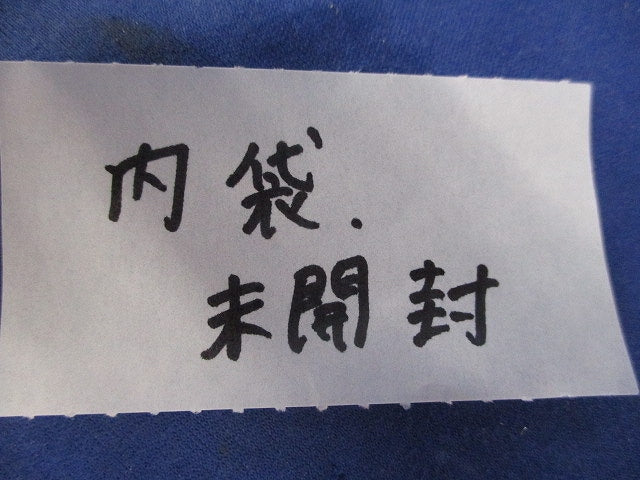 内袋.
未開封